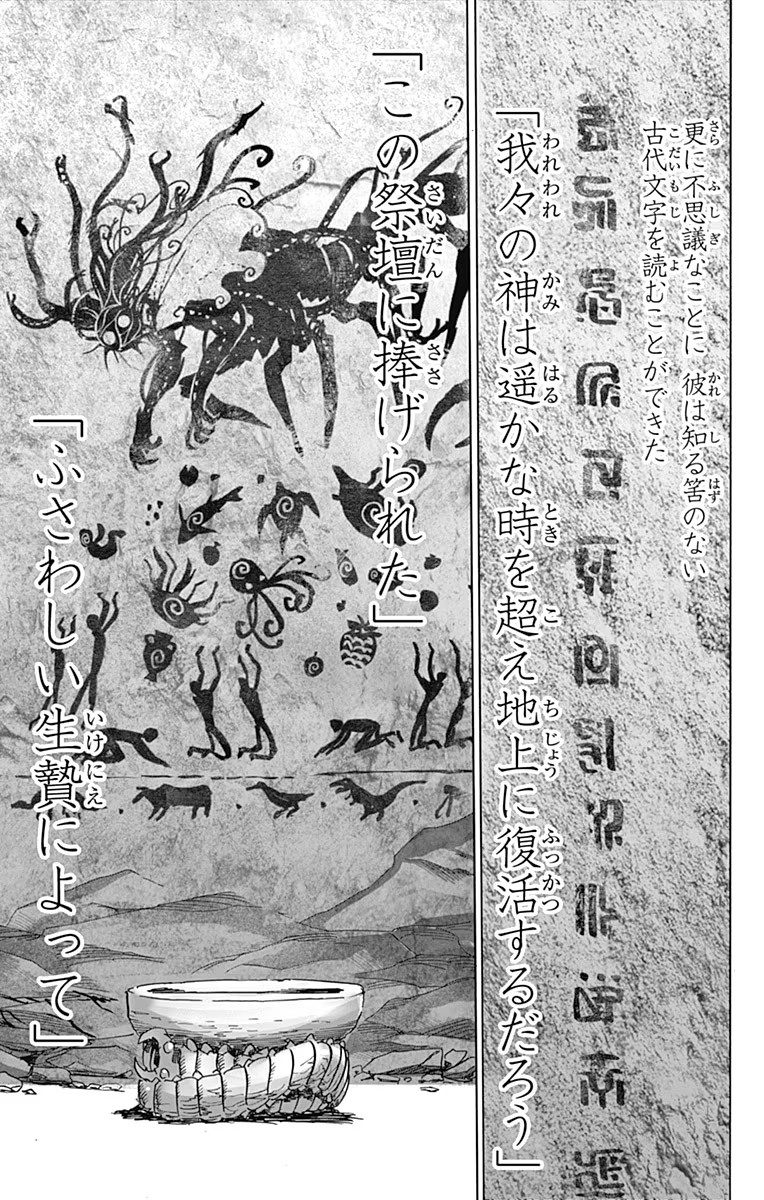 更に不思議なことに 彼は知る筈のない
古代文字を読むことができた
「我々の神は遥かな時を超え地上に復活するだろう」
「この祭壇に捧げられた」
「ふさわしい生贄によって」